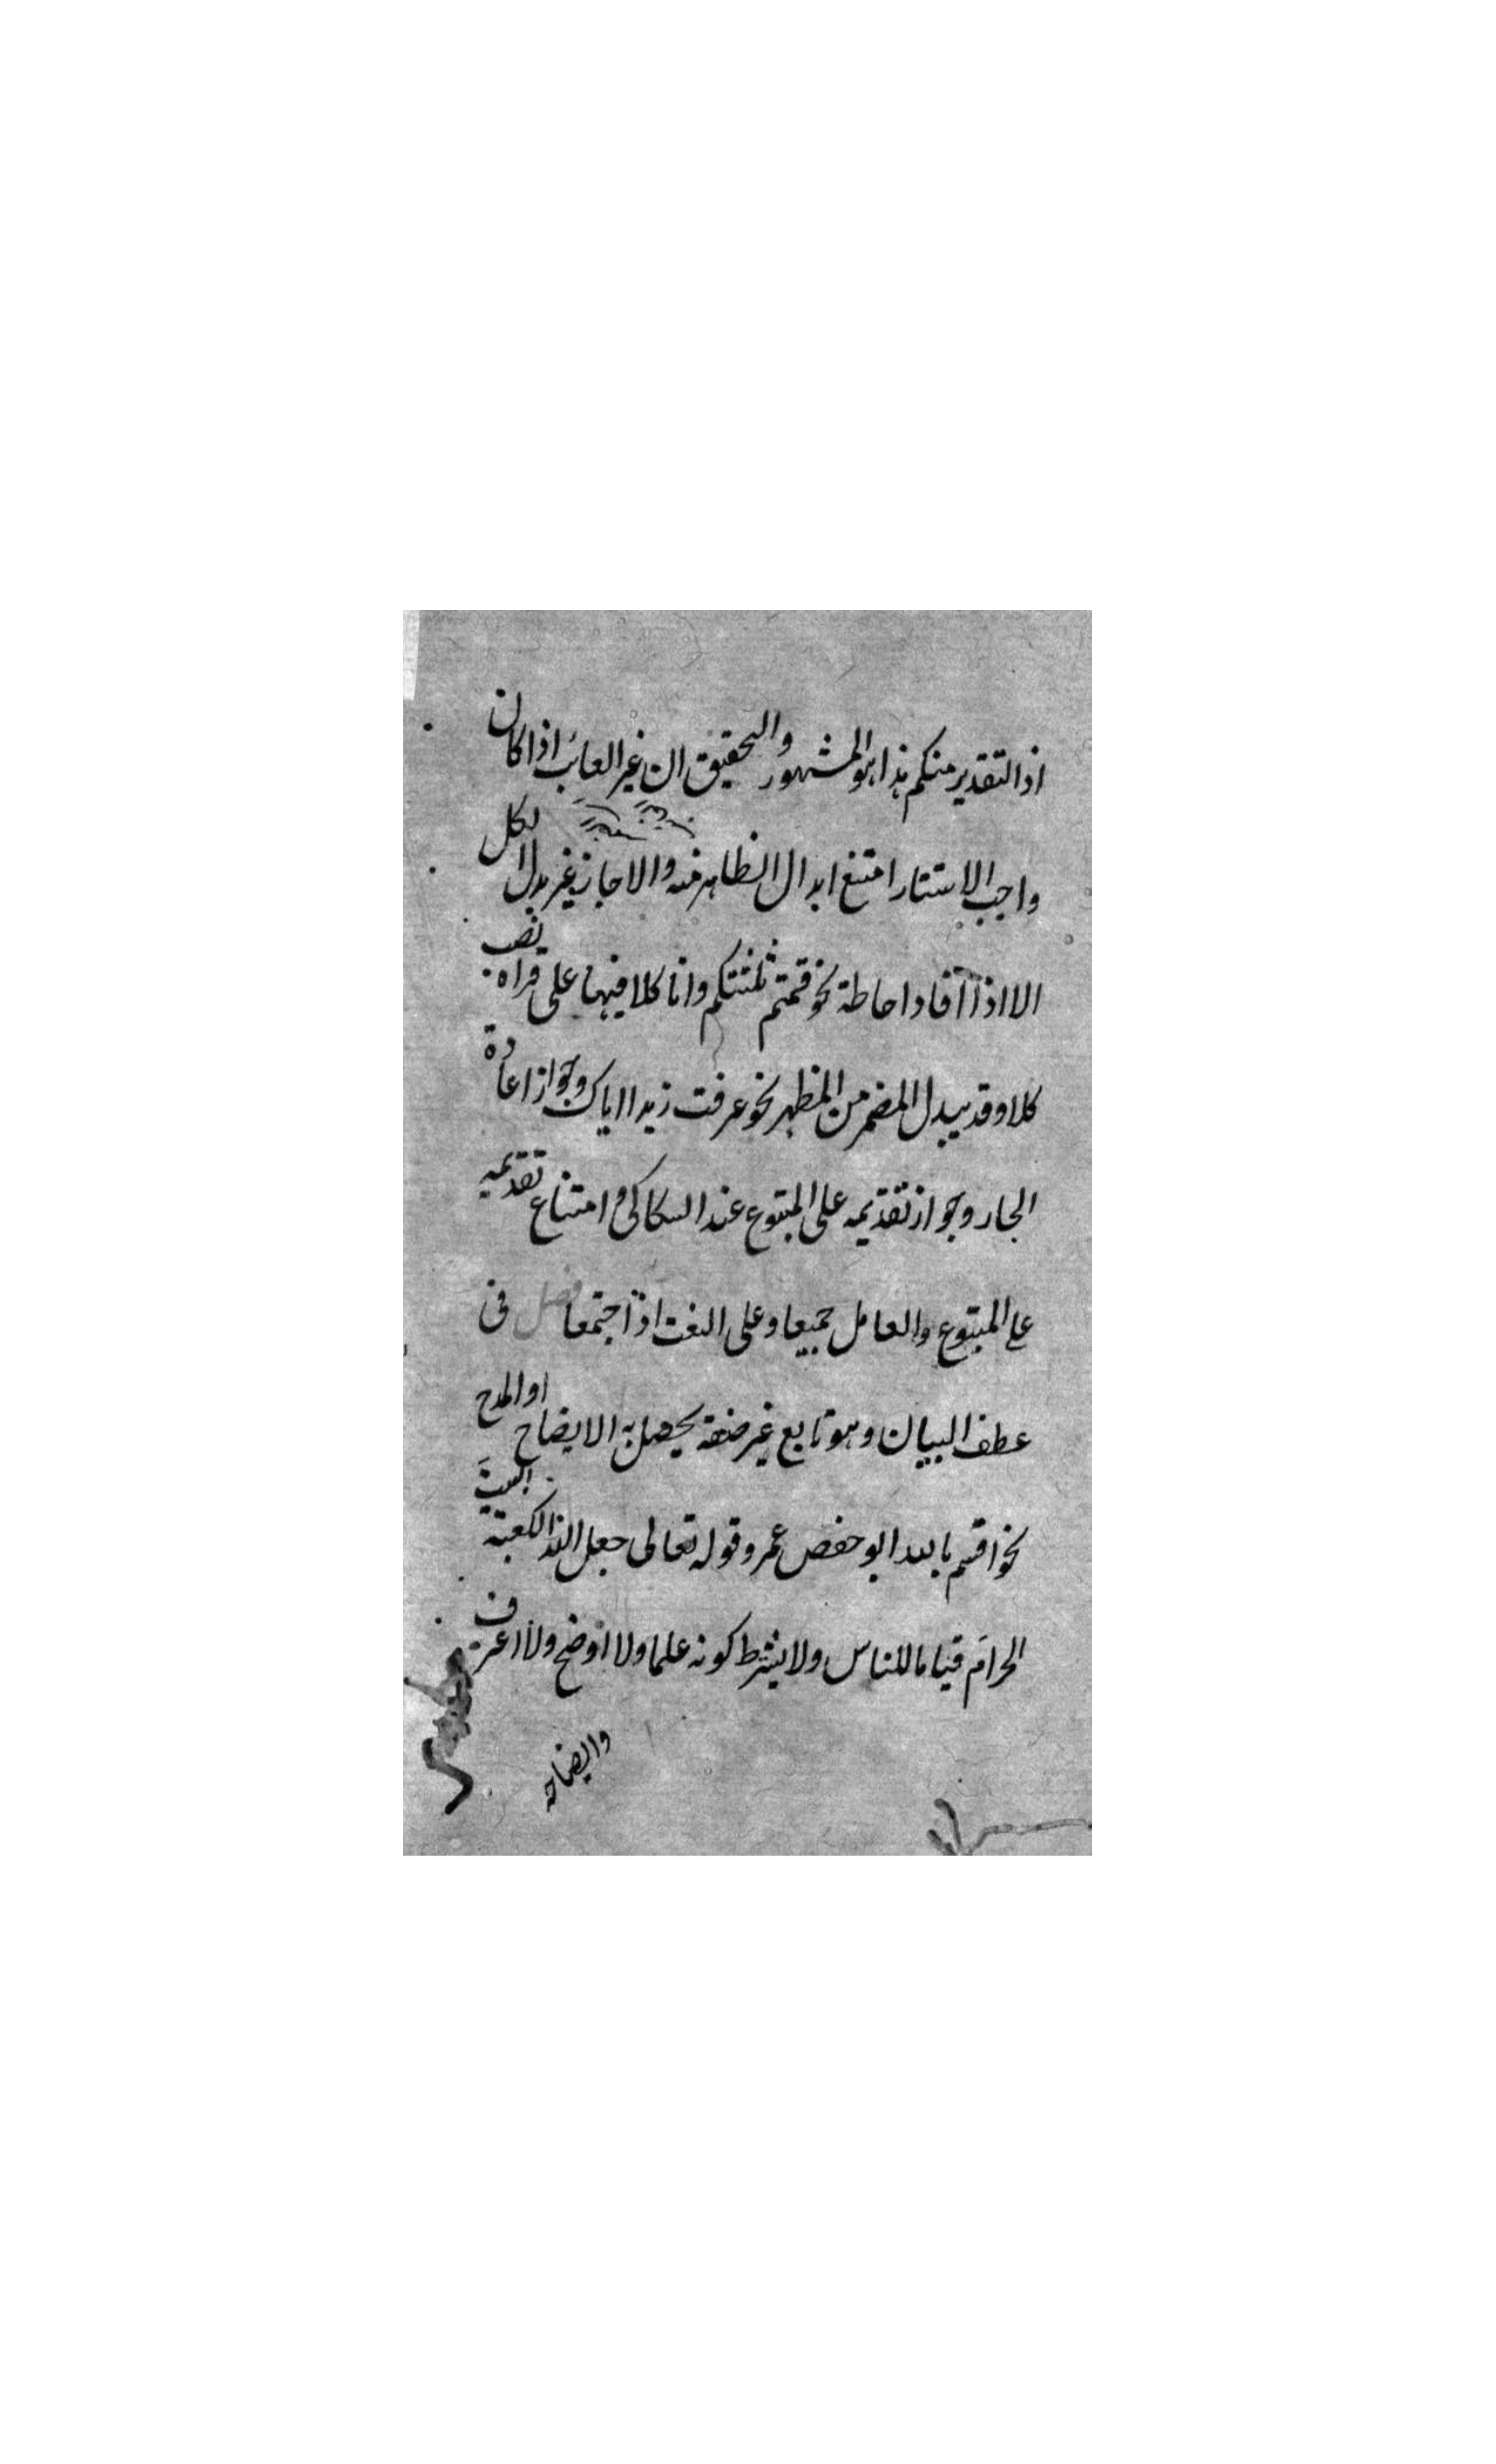 اذ التقدير منكم هذا هو المشهور والتحقيق ان غير الغائب اذا كان
واجب الاستتار امتنع ابدال الظاهر منه والا جاز فى غير بدل الكل
الا اذا آفاد احاطة نحو قمتم ثلثتكم وانا كلا فيها على قراة نصب
كلا وقد يبدل المضمر من المظهر نحو عرفت زيدا اياك وجواز اعادة
الجار وجواز تقديمه على المتبوع عند السكاكى و امتناع تقديمه
على المتبوع والعامل جميعا وعلى النعت اذا اجتمعا فصل فى
عطف البيان وهو تابع غير صفة يحصل به الايضاح او المدح
نحو اقسم بالله ابو حفص عمر وقوله تعالى جعل الله الكعبة البيت
الحرام قياما للناس ولا يشترط كونه علما ولا اوضح ولا اعرف
وايضاحه